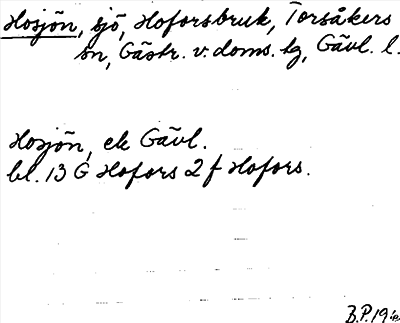 Hosjön, sjö, Hoforsbruk, Torsåkers
sn, Gästr. v. doms. tg, Gävl. l.
Hosjön, ek Gävl.
bl. 13 G Hofors 2 f Hofors.
B.P.19